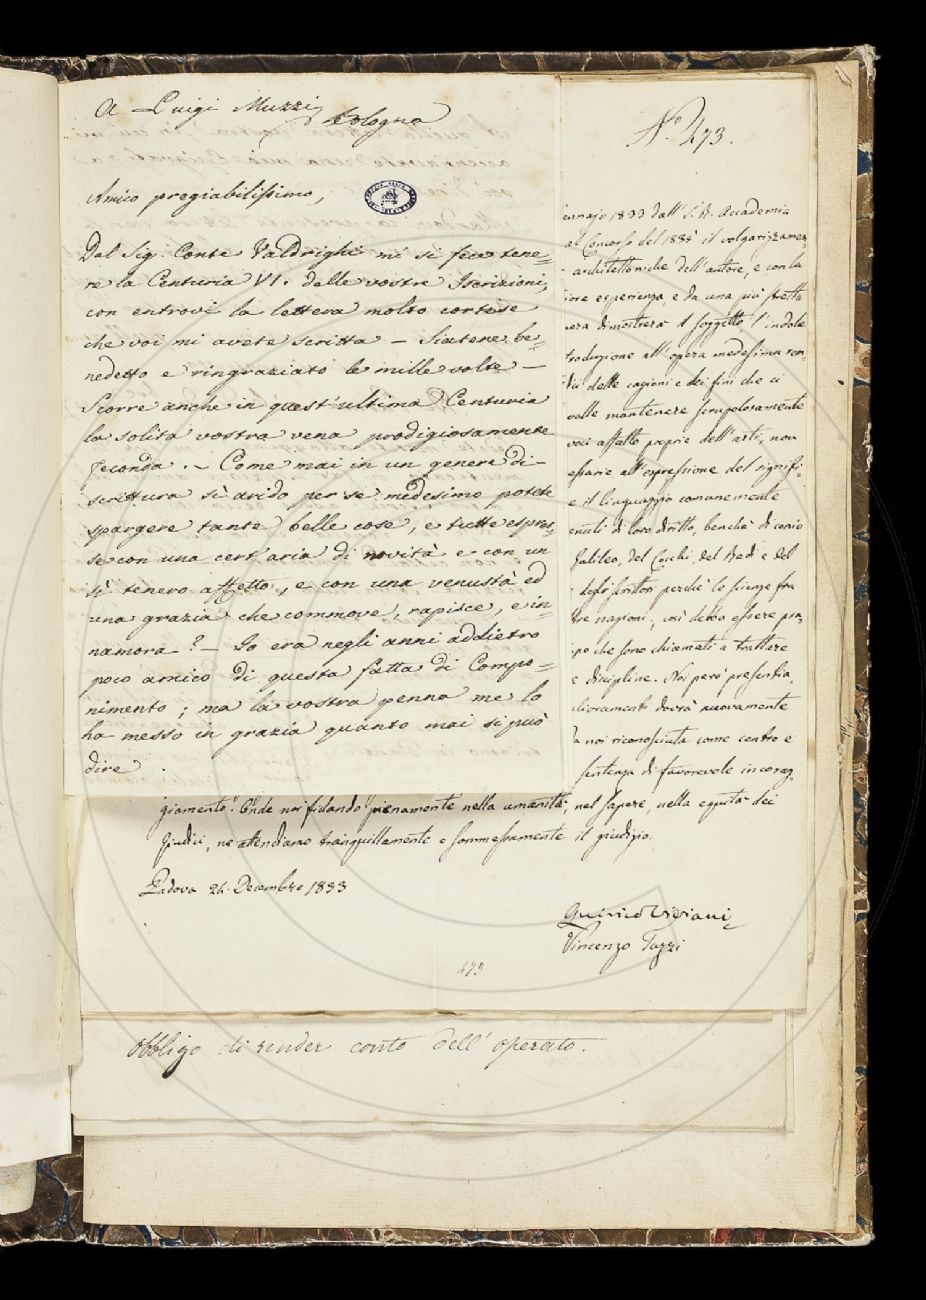 A Luigi Muzzi,
Bologna
Amico pregiabilissimo,
Dal Sig. Conte Valdrighi mi si fece tene=
re la Centuria VI. delle vostre Iscrizioni,
con entrovi la lettera molto cortese
che voi mi avete scritta – Siatene be=
nedetto e ringraziato le mille volte –
Scorre anche in quest'ultima Centuria
la solita vostra vena prodigiosamente
feconda. – Come mai in un genere di
scrittura sì arido per se medesimo potete
spargere tante belle cose, e tutte espres=
se con una cert'aria di novità e con un
sì tenero affetto, e con una venustà ed
una grazia che commove, rapisce, e in=
namora? – Io era negli anni addietro
poco amico di questa fatta di Compo=
nimento; ma la vostra penna me lo
ha messo in grazia quanto mai si può
dire.
N.° 473.
ennajo 1833 dall' I. R. Accademia
al Concorso del 1833 il volgarizzamen=
architettoniche dell'autore, e con la
iore esperienza, e da una più stretta
era dimostrerà il soggetto l'indole
traduzione all'opera medesima con
delle cagioni e dei fini che ci
volle mantenere scrupolosamente
voci affatto proprie dell'arti, non
essarie all'espressione del signifi=
e il linguaggio comunemente
di loro diritto, benchè di conio
Galileo, del Cocchi, del Redi e del
degli scrittori perchè le scienze fra
tre nazioni, così debbo essere pro=
ipo che sono chiamati a trattare
e discipline. Noi però presentia
licramenti dovrà nuovamente
da noi riconosciuta come centro e
sentenza di favorevole incorag=
giamento. Onde noi fidando pienamente nella umanità, nel sapere, nella equità dei
Giudici, ne attendiamo tranquillamente e sommessamente il giudizio.
Padova 24 Decembre 1833
Quirico Viviani
Vincenzo Tuzzi
473
Obbligo di render conto dell'operato.